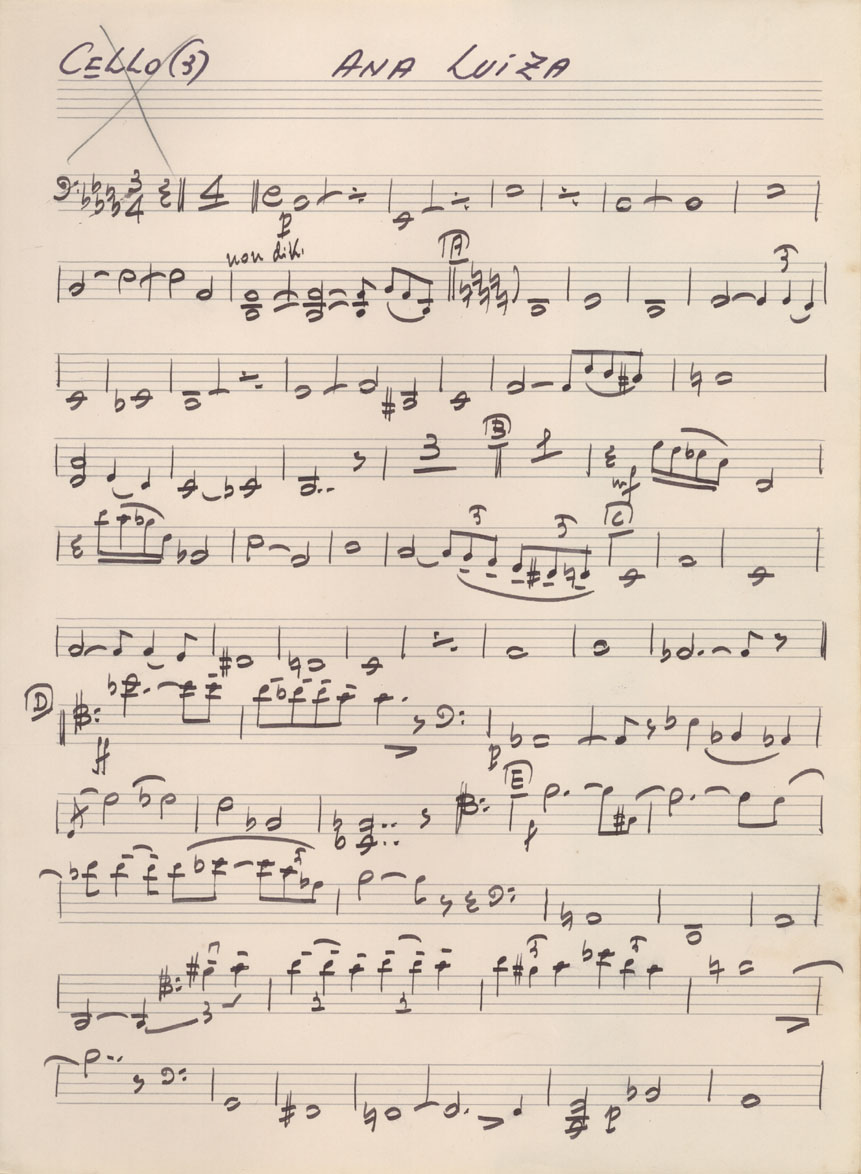 CELLO (3) ANA LUIZA
3 4 4 p
non div. A 3
3 B 1 mf
3 3 C
D ff p
E f
3
3 2 2 3 3
p